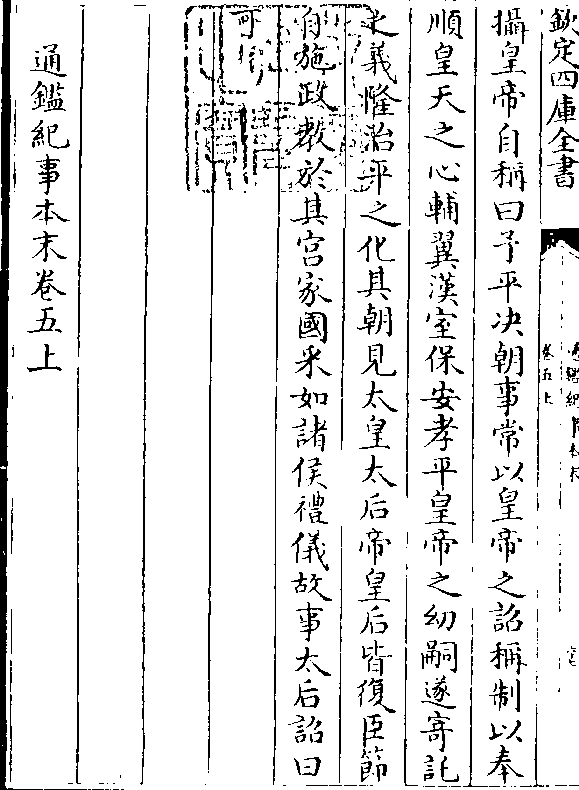 欽定四庫全書
卷五上
攝皇帝自稱曰予平决朝事常以皇帝之詔稱制以奉
順皇天之心輔翼漢室保安孝平皇帝之幼嗣遂寄託
之義隆治平之化其朝見太皇太后帝皇后皆復臣節
自施政教於其宫家國采如諸侯禮儀故事太后詔曰
可
通鑑紀事本末卷五上